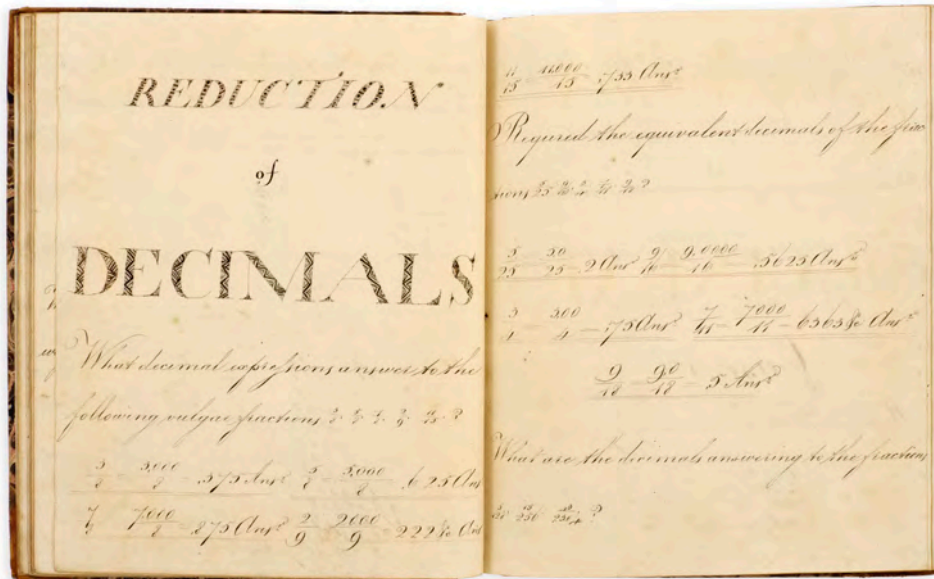 REDUCTION
of
DECIMALS
What decimal expressions answer to the
following vulgar fractions
3/8 3,000/8 .375 Ans 5/8 5,000/8 .625 Ans
7/8 7,000/8 875 Ans 2/9 2000/9 222 &c Ans
11/15 11,000/15 ,733 Ans
Required the equivalent decimals of the frac
tions
5/25 50/25 2 Ans 9/16 9,0000/16 .5625 Ans
3/4 300/4 75 Ans 7/11 7000/11 6363 &c Ans
9/18 90/18 5 Ans
What are the decimals answering to the fractions